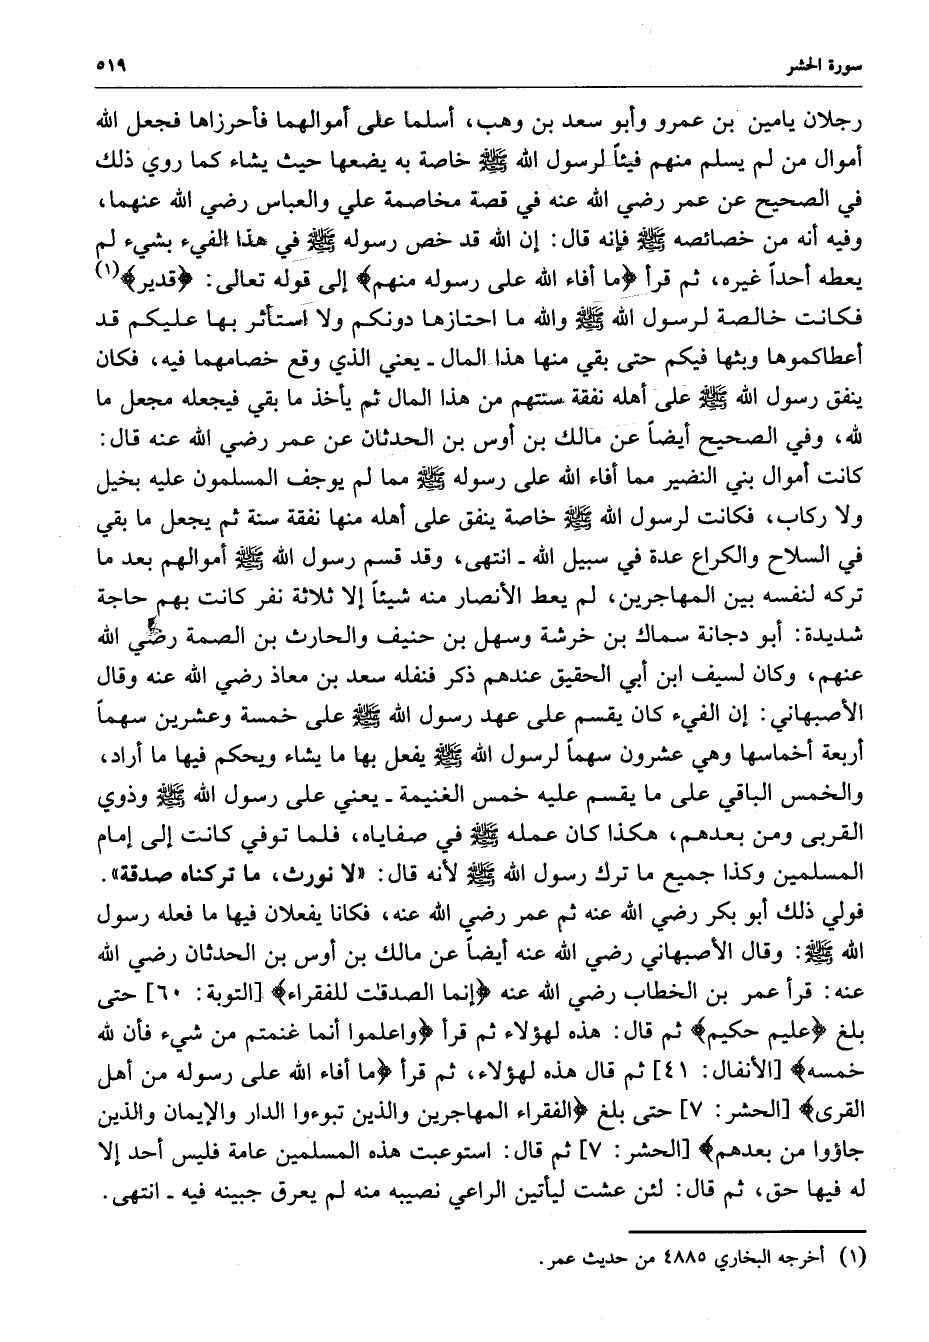 سورة الحشر ٥١٩
رجلان يامين بن عمرو وأبو سعد بن وهب، أسلما على أموالهما فأحرزاها فجعل الله
أموال من لم يسلم منهم فيئاً لرسول الله ﷺ خاصة به يضعها حيث يشاء كما روي ذلك
في الصحيح عن عمر رضي الله عنه في قصة مخاصمة علي والعباس رضي الله عنهما،
وفيه أنه من خصائصه ﷺ فإنه قال: إن الله قد خص رسوله ﷺ في هذا الفيء بشيء لم
يعطه أحداً غيره، ثم قرأ ﴿ما أفاء الله على رسوله منهم﴾ إلى قوله تعالى: ﴿قدير﴾(١)
فكانت خالصة لرسول الله ﷺ والله ما احتازها دونكم ولا استأثر بها عليكم قد
أعطاكموها وبثها فيكم حتى بقي منها هذا المال ـ يعني الذي وقع خصامهما فيه، فكان
ينفق رسول الله ﷺ على أهله نفقة سنتهم من هذا المال ثم يأخذ ما بقي فيجعله مجعل ما
لله، وفي الصحيح أيضاً عن مالك بن أوس بن الحدثان عن عمر رضي الله عنه قال:
كانت أموال بني النضير مما أفاء الله على رسوله ﷺ مما لم يوجف المسلمون عليه بخيل
ولا ركاب، فكانت لرسول الله ﷺ خاصة ينفق على أهله منها نفقة سنة ثم يجعل ما بقي
في السلاح والكراع عدة في سبيل الله ـ انتهى، وقد قسم رسول الله ﷺ أموالهم بعد ما
تركه لنفسه بين المهاجرين، لم يعط الأنصار منه شيئاً إلا ثلاثة نفر كانت بهم حاجة
شديدة: أبو دجانة سماك بن خرشة وسهل بن حنيف والحارث بن الصمة رضي الله
عنهم، وكان لسيف ابن أبي الحقيق عندهم ذكر فنفله سعد بن معاذ رضي الله عنه وقال
الأصبهاني: إن الفيء كان يقسم على عهد رسول الله ﷺ على خمسة وعشرين سهماً
أربعة أخماسها وهي عشرون سهماً لرسول الله ﷺ يفعل بها ما يشاء ويحكم فيها ما أراد،
والخمس الباقي على ما يقسم عليه خمس الغنيمة ـ يعني على رسول الله ﷺ وذوي
القربى ومن بعدهم، هكذا كان عمله ﷺ في صفاياه، فلما توفي كانت إلى إمام
المسلمين وكذا جميع ما ترك رسول الله ﷺ لأنه قال: «لا نورث، ما تركناه صدقة».
فولي ذلك أبو بكر رضي الله عنه ثم عمر رضي الله عنه، فكانا يفعلان فيها ما فعله رسول
الله ﷺ: وقال الأصبهاني رضي الله عنه أيضاً عن مالك بن أوس بن الحدثان رضي الله
عنه: قرأ عمر بن الخطاب رضي الله عنه ﴿إنما الصدقت للفقراء﴾ [التوبة: ٦٠] حتى
بلغ ﴿عليم حكيم﴾ ثم قال: هذه لهؤلاء ثم قرأ ﴿واعلموا أنما غنمتم من شيء فأن لله
خمسه﴾ [الأنفال: ٤١] ثم قال هذه لهؤلاء، ثم قرأ ﴿ما أفاء الله على رسوله من أهل
القرى﴾ [الحشر: ٧] حتى بلغ ﴿الفقراء المهاجرين والذين تبوءوا الدار والإيمان والذين
جاؤوا من بعدهم﴾ [الحشر: ٧] ثم قال: استوعبت هذه المسلمين عامة فليس أحد إلا
له فيها حق، ثم قال: لئن عشت ليأتين الراعي نصيبه منه لم يعرق جبينه فيه ـ انتهى.
(١) أخرجه البخاري ٤٨٨٥ من حديث عمر.